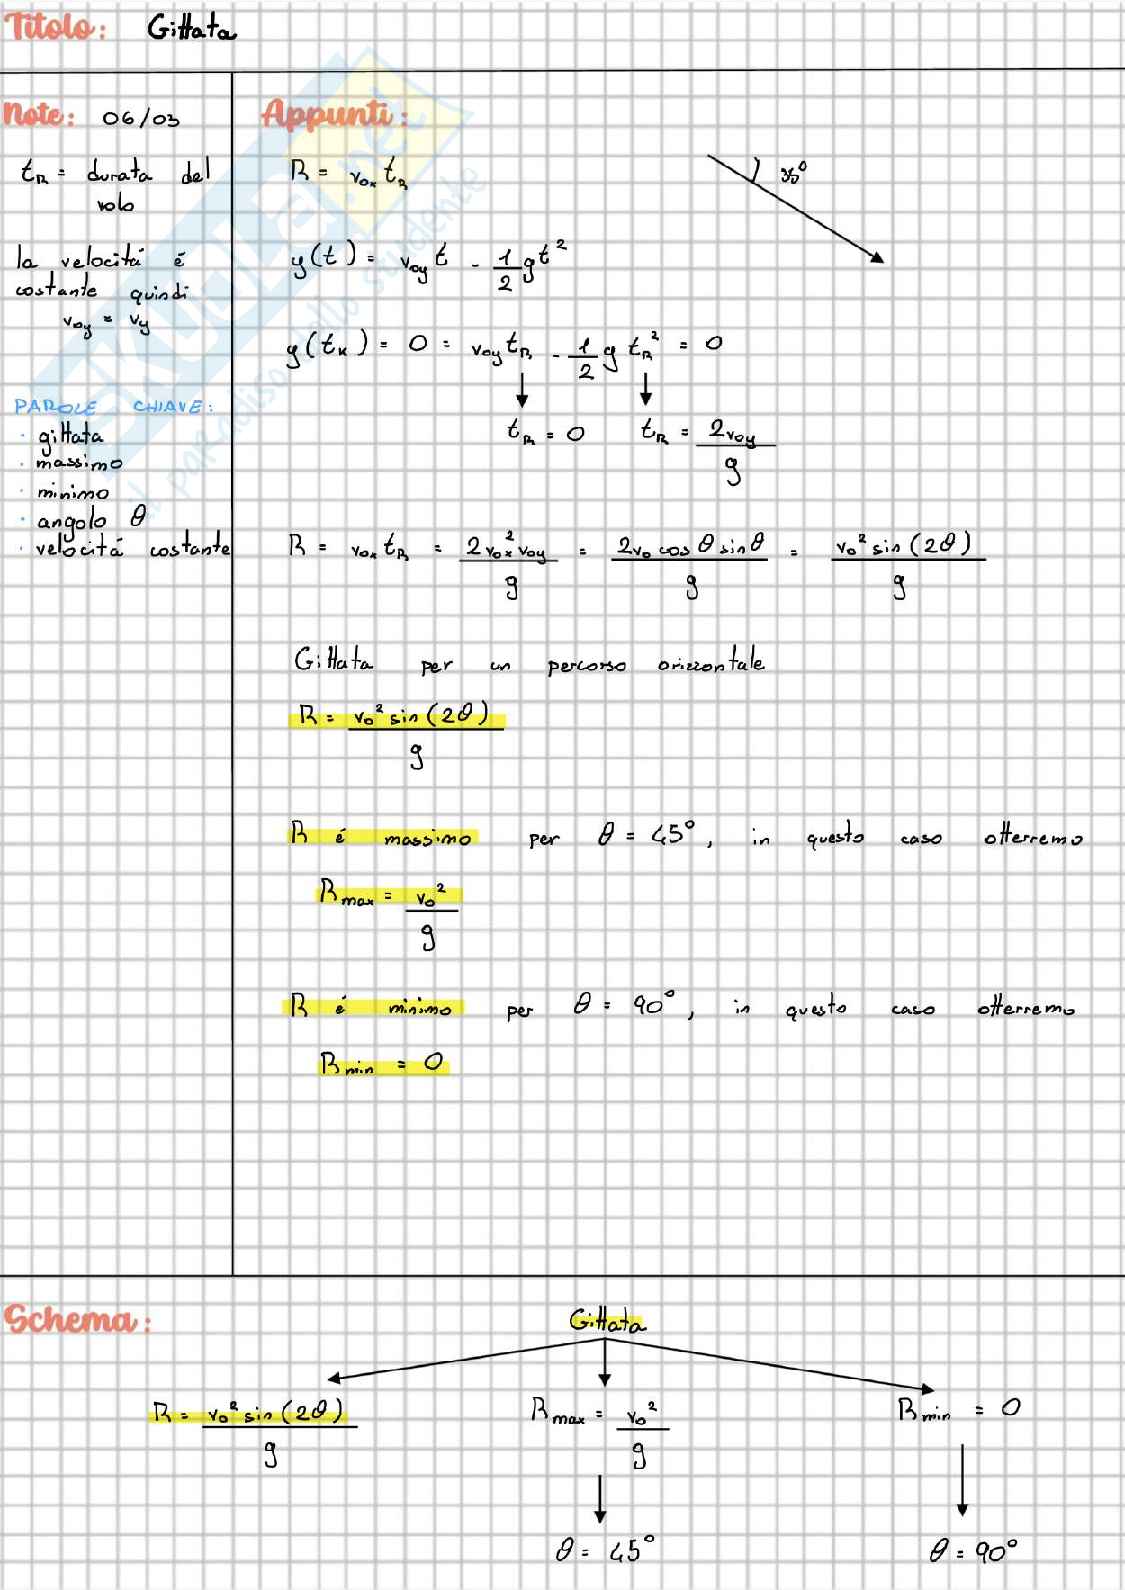 Titolo: Gittata
Note: 06/03
t_R = durata del
volo
la velocitá é
costante quindi
v_oy = v_y
PAROLE CHIAVE:
· gittata
· massimo
· minimo
· angolo θ
· velocitá costante
Appunti:
R = v_ox t_R
35°
y(t) = v_oy t - 1/2 g t²
y(t_R) = 0 = v_oy t_R - 1/2 g t_R² = 0
t_R = 0 t_R = 2v_oy/g
R = v_ox t_R = 2v_ox² v_oy/g = 2v_o cos θ sin θ/g = v_o² sin(2θ)/g
Gittata per un percorso orizzontale
R = v_o² sin(2θ)/g
R é massimo per θ = 45°, in questo caso otterremo
R_max = v_o²/g
R é minimo per θ = 90°, in questo caso otterremo
R_min = 0
Schema:
Gittata
R = v_o² sin(2θ)/g R_max = v_o²/g R_min = 0
θ = 45° θ = 90°
SKUOLA.net
il paradiso dello studente